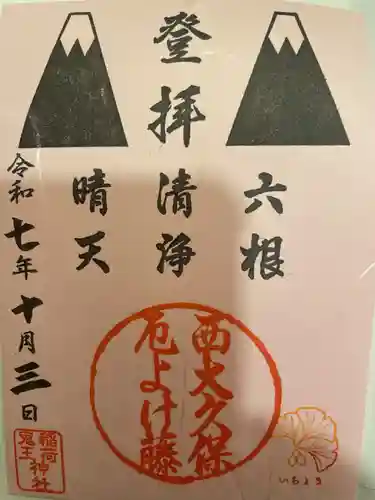 登拝
六根
清浄
晴天
令和七年十月三日
西大久保
厄よけ藤
稲荷
鬼王
神社